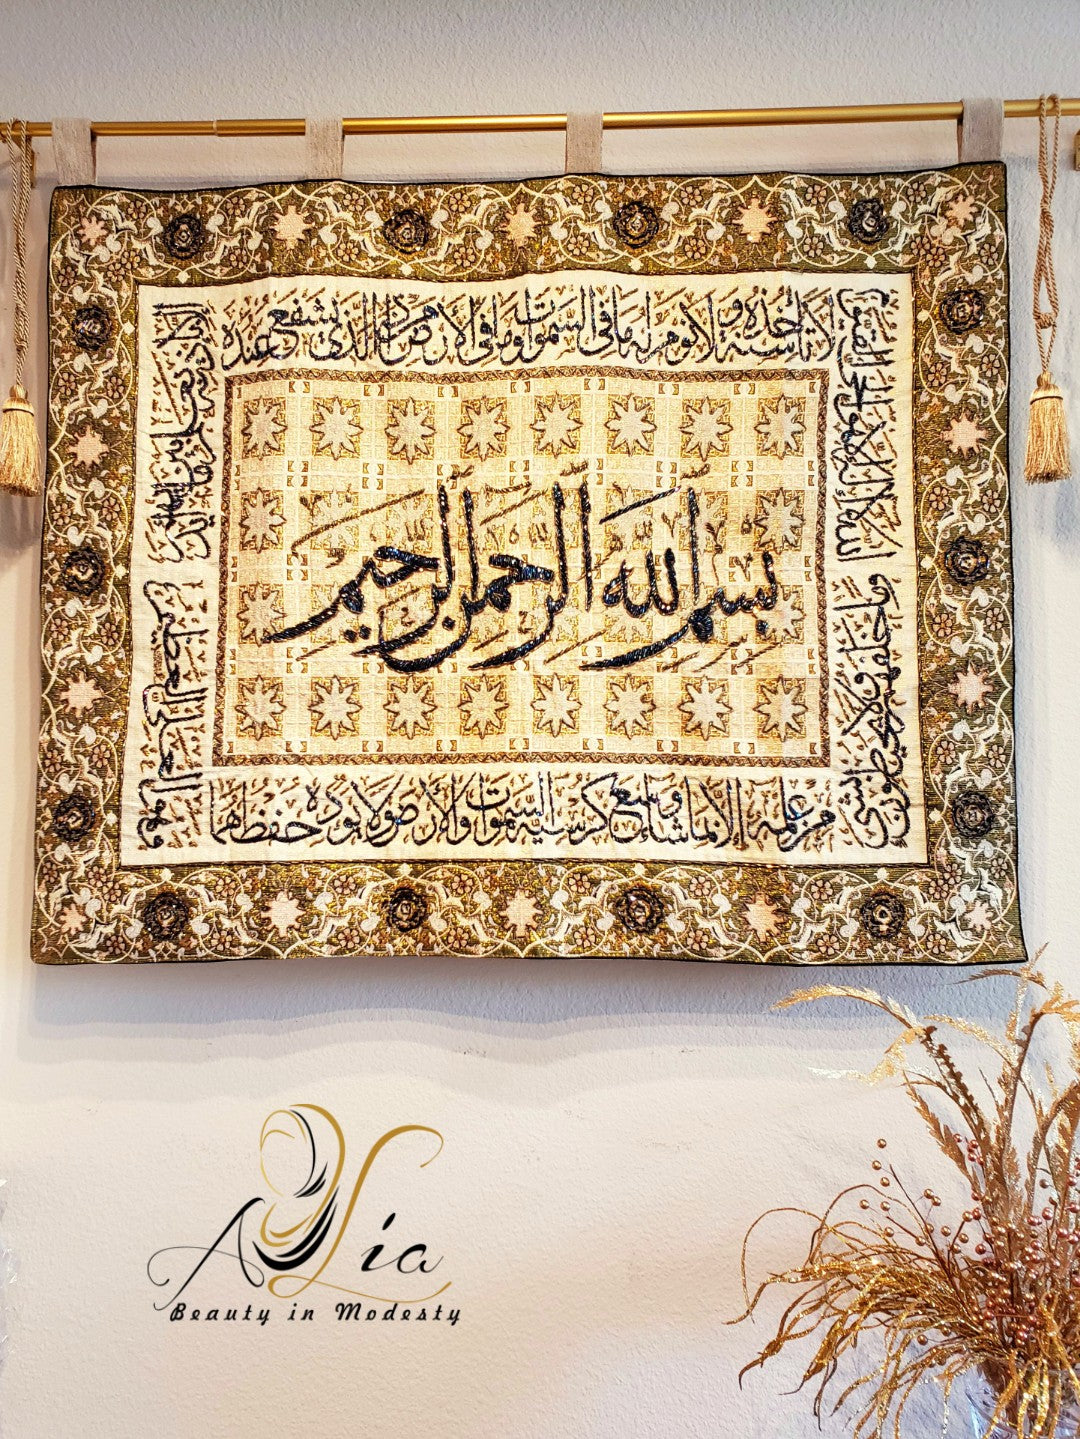 الله لا اله الا هو الحي القيوم
لا تأخذه سنة ولا نوم له ما في السموات وما في الأرض من ذا الذي يشفع عنده
إلا بإذنه يعلم ما بين أيديهم
وما خلفهم ولا يحيطون بشئ
من علمه إلا بما شاء وسع كرسيه السموات والأرض ولا يؤده حفظهما
وهو العلي العظيم
بسم الله الرحمن الرحيم
Aylia
Beauty in Modesty